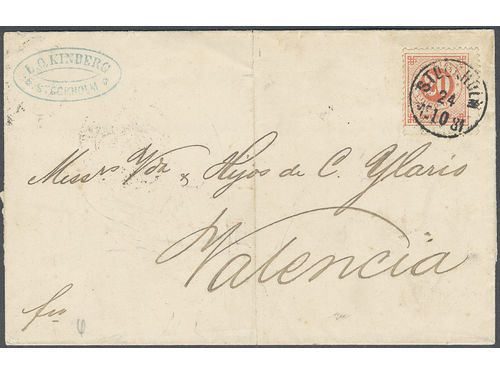 L. O. KINBERG
STOCKHOLM
STOCKHOLM
24
10 81
Messrs Vda & Hijos de C. Glario
Valencia